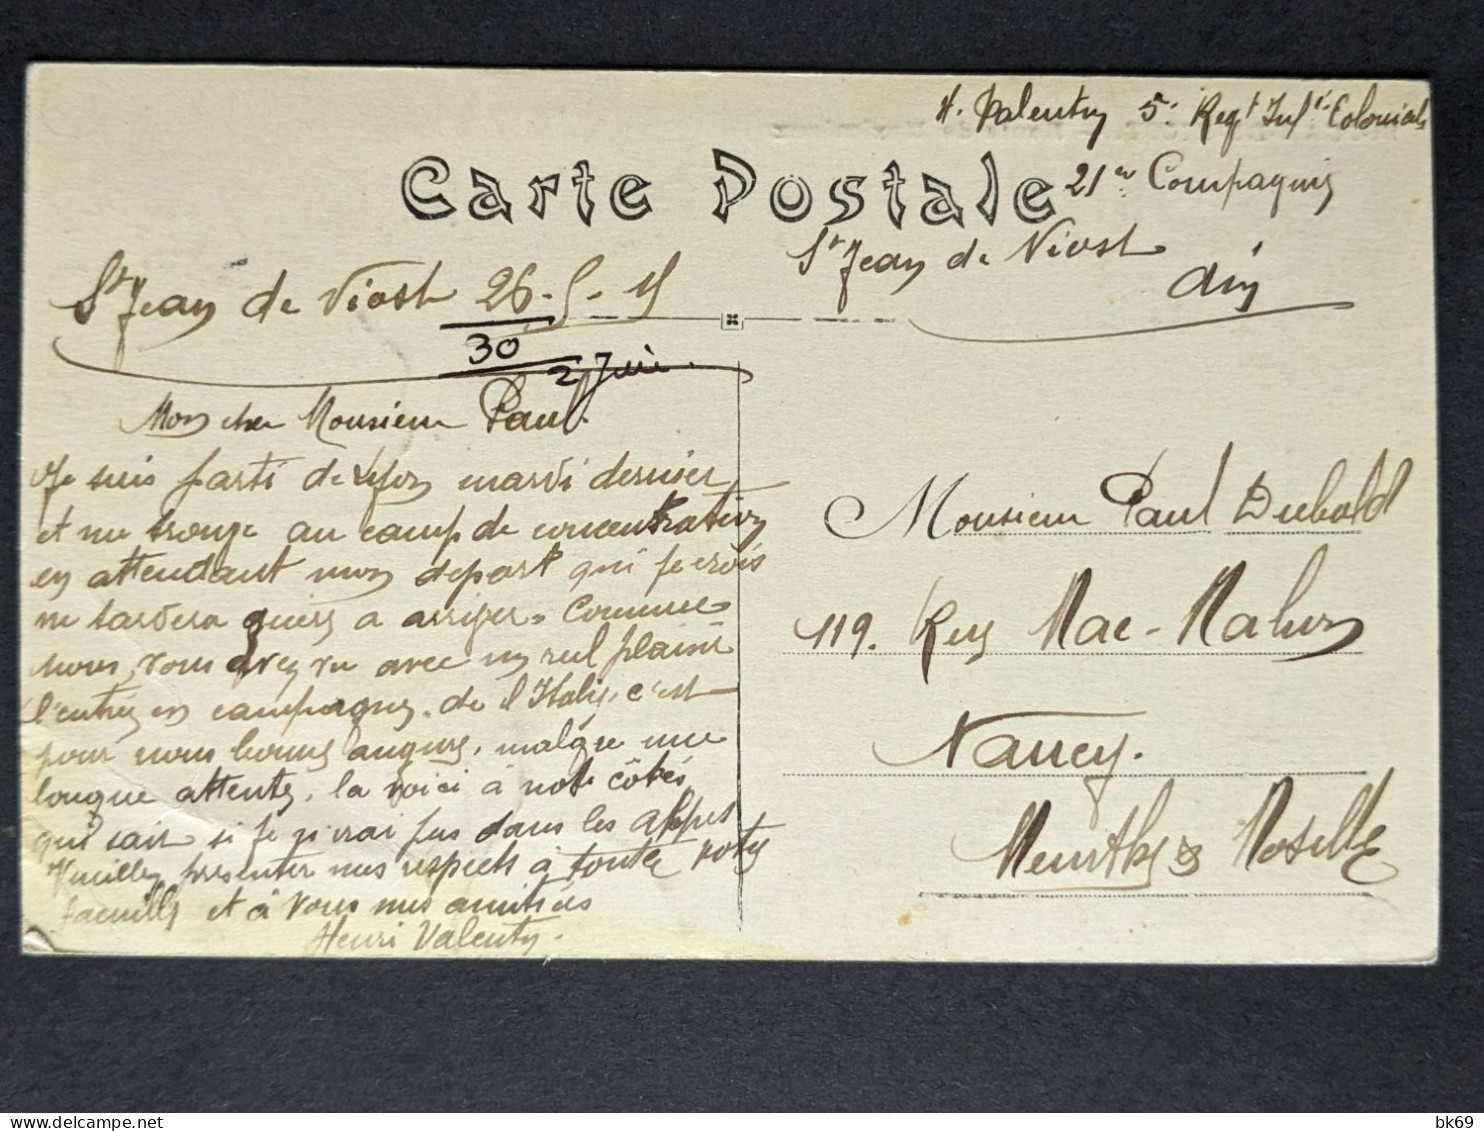 H. Valentin 5e Regt Infie Coloniale
Carte Postale
21me Compagnie
St Jean de Niost
Ain
St Jean de Niost 26-5-15
30
2 Juin.
Mon cher Monsieur Paul.
Je suis parti de Lyon mardi dernier
et me trouve au camp de concentration
en attendant mon depart qui je crois
ne tardera guère a arriver. Comme
nous, vous avez vu avec un seul plaisir
l'entrée en campagne de l'Italie, c'est
pour nous bonne augure, malgre une
longue attente, la voici à not côtés
qui sait si je n'irai pas dans les alpes
Veuillez presenter mes respects à toute votre
famille et à vous mes amitiés
Henri Valentin.
Monsieur Paul Diebold
119. Rue Mac-Mahon
Nancy.
Meurthe & Moselle
bk69